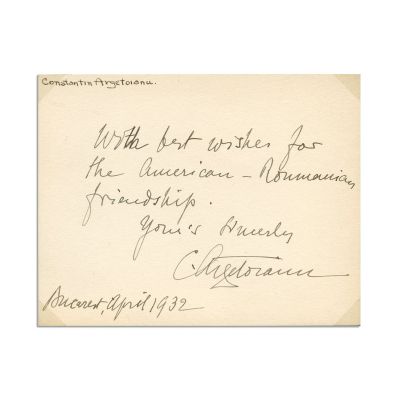 Constantin Argetoianu.
With best wishes for
the American - Roumanian
friendship.
Yours sincerely
C. Argetoianu
Bucarest, April 1932